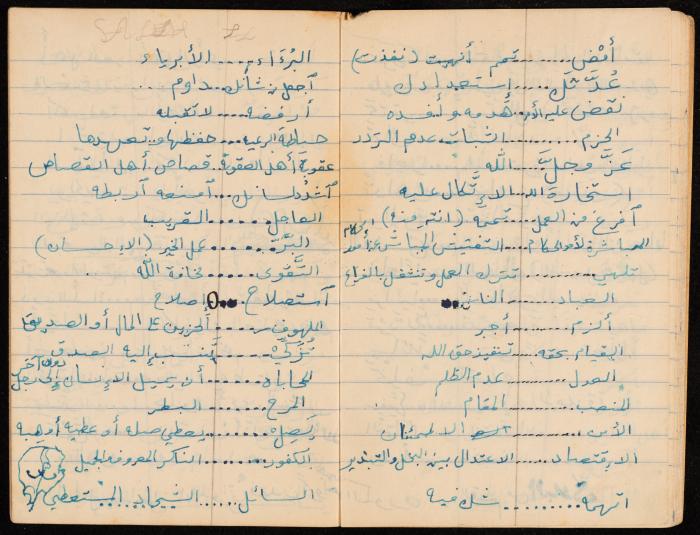 أمْض....... تمم أنهيت (نفذت)
عُدَّ ثمَّل...... استعد لذلك
نقض عليه الأمر.. هَدمه وأفسده
الحزم.......... الثبات وعدم التردد
عَزَّ وجلّ...... الله
استخارة الله.... الاتِّكال عليه
آفرغ من العمل.... تممه (انته منه)
المباشرة لأمور الحكام... التفتيش المباشر عن أمور الحكام
تلهي....... تترك العمل وتنشغل بالفراغ
العباد....... الناس
ألزم...... أجبر
القيام بحقه...... تنفيذ حق الله
العدل....... عدم الظلم
المنصب....... المقام
الأمن........ الاطمئنان
الاقتصاد...... الاعتدال بين البخل والتبذير
اتهمه.......... شك فيه
البُرَءَاء...... الأبرياء
آجعل من شأنك.. داوم...
أرفضه.... لا تقبله
حياطة الرعية... حفظها وتعهدها
عقوبة أهل العقوبة.. قصاص أهل القصاص
آشدُد لسانك... آمنعه آربطه
العاجل...... القريب
البِرَّ...... عمل الخير (الإحسان)
التَّقوى...... مخافة الله
آستصلاح..... إصلاح
الملهوف...... الحزين على المال أو الصديق
تُزكّيه....... يُنسب إليه الصدق
المحاباه...... أن يميل الإنسان إلى رجل دون آخر
المرح...... البطر
يَصِله...... يعطي صلة أو عطية أو هبة
الكفور....... الناكر المعروف والجميل
السائل...... الشحاد.... المستعطي